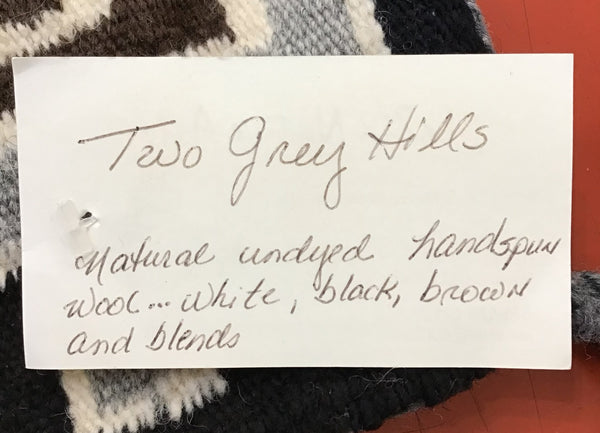 Two Grey Hills
Natural undyed handspun
wool... white, black, brown
and blends